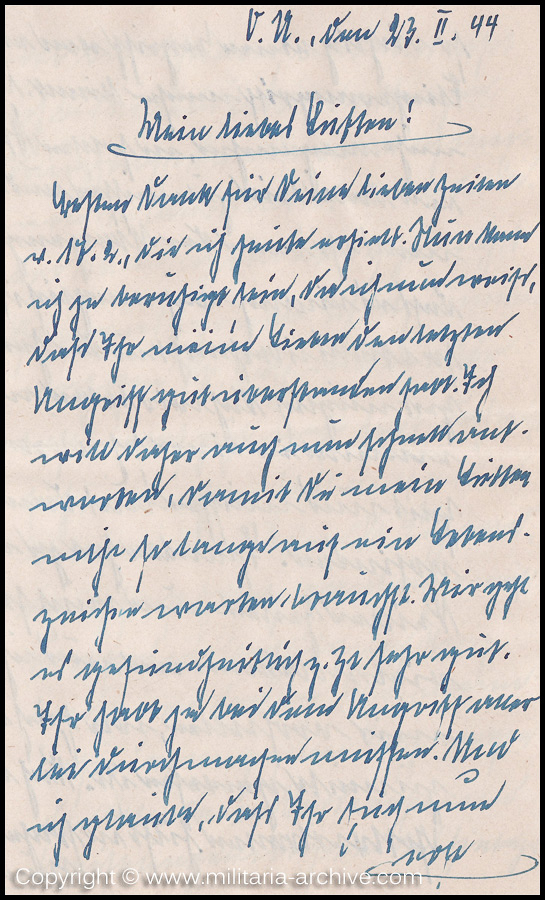 O. U., den 23. II. 44
Mein liebes !
Besten Dank für Deine lieben Zeilen
v. 17. 2., die ich heute erhielt. Nun kann
ich ja beruhigt sein, da ich nun weiß,
daß Ihr meine Lieben den letzten
Angriff gut überstanden habt. Ich
will daher auch nun schnell ant-
worten, damit Du mein
nicht so lange auf ein Lebens-
zeichen warten brauchst. Mir geht
es gesundheitlich z. Zt sehr gut.
Ihr habt ja bei dem Angriff aller
lei durchmachen müssen! Und
ich glaube, daß Ihr Euch nun
Copyright © www.militaria-archive.com